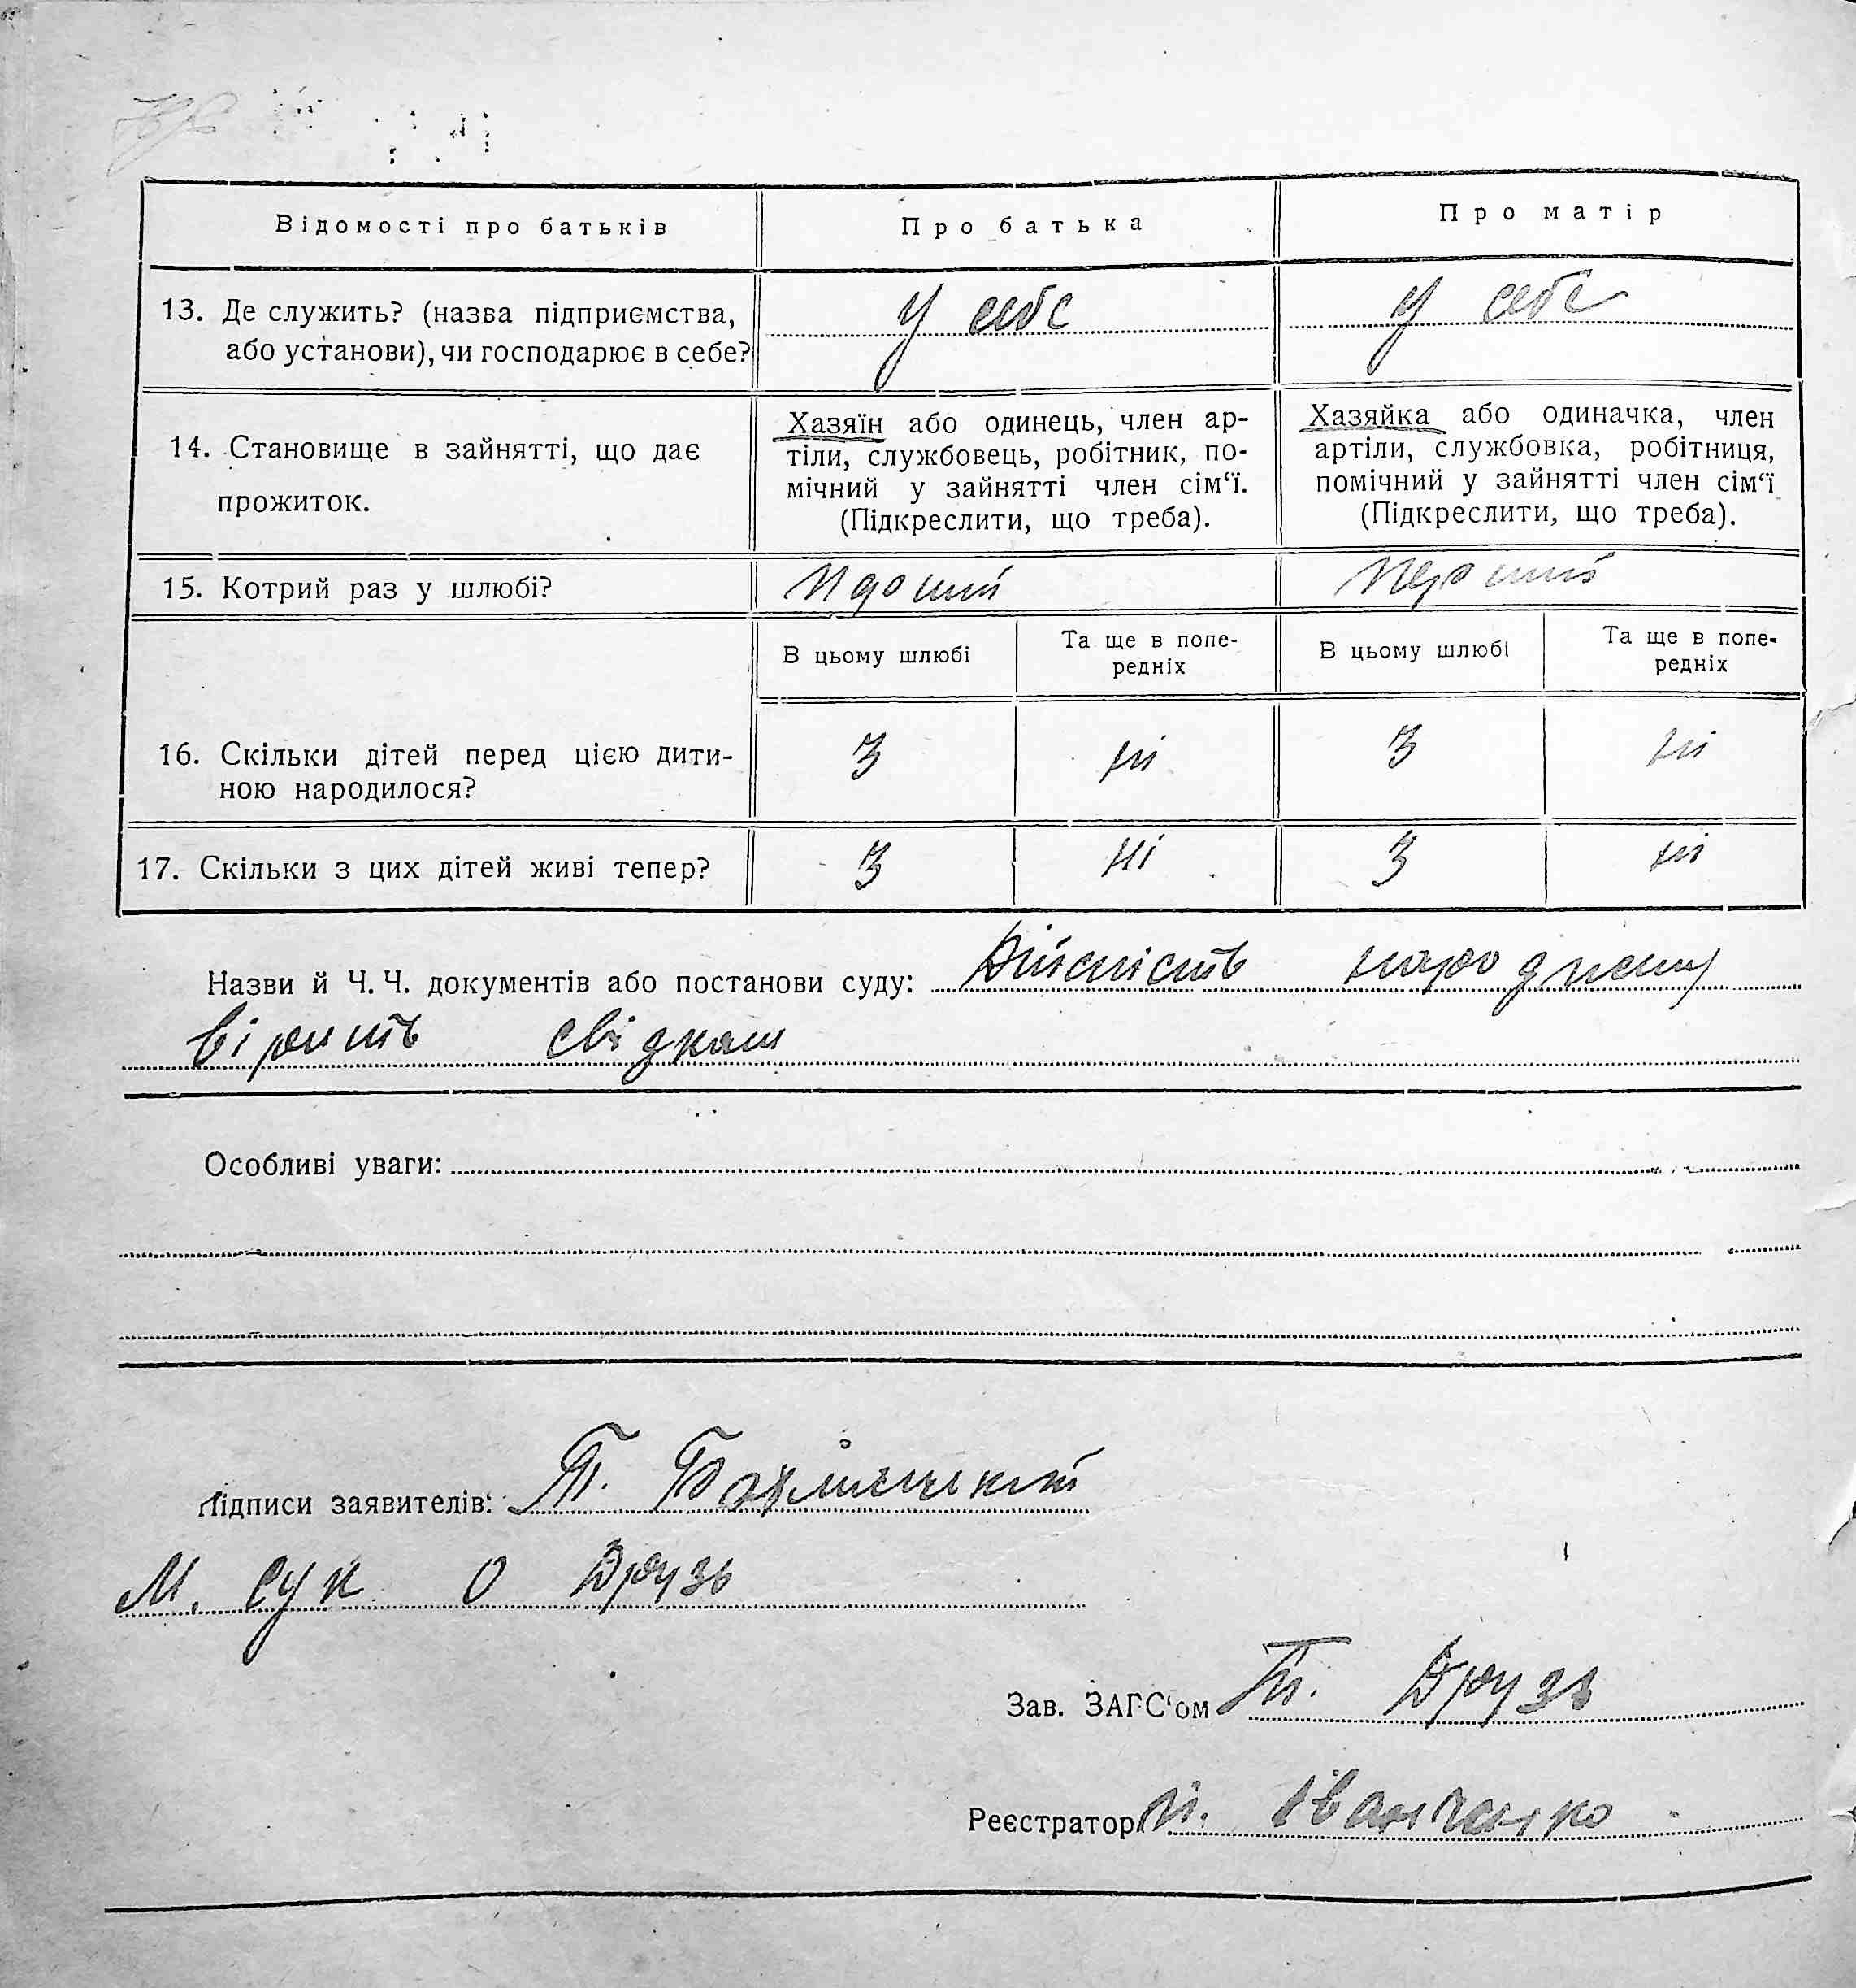 Відомості про батьків Про батька Про матір
13. Де служить? (назва підприємства, у себе у себе
або установи), чи господарює в себе?
14. Становище в зайнятті, що дає прожиток.
Хазяїн або одинець, член ар-
тіли, службовець, робітник, по-
мічний у зайнятті член сім‘ї.
(Підкреслити, що треба).
Хазяйка або одиначка, член
артіли, службовка, робітниця,
помічний у зайнятті член сім‘ї
(Підкреслити, що треба).
15. Котрий раз у шлюбі? перший
В цьому шлюбі Та ще в попе-редніх В цьому шлюбі Та ще в попе-редніх
16. Скільки дітей перед цією дити- 3 ні 3 ні
ною народилося?
17. Скільки з цих дітей живі тепер? 3 ні 3 ні
Назви й Ч. Ч. документів або постанови суду: Дійсність
вірить свідками
Особливі уваги:
Підписи заявителів: Т.
М. Сук О Друзь
Зав. ЗАГС‘ом Т. Друзь
Реєстратор Іванченко